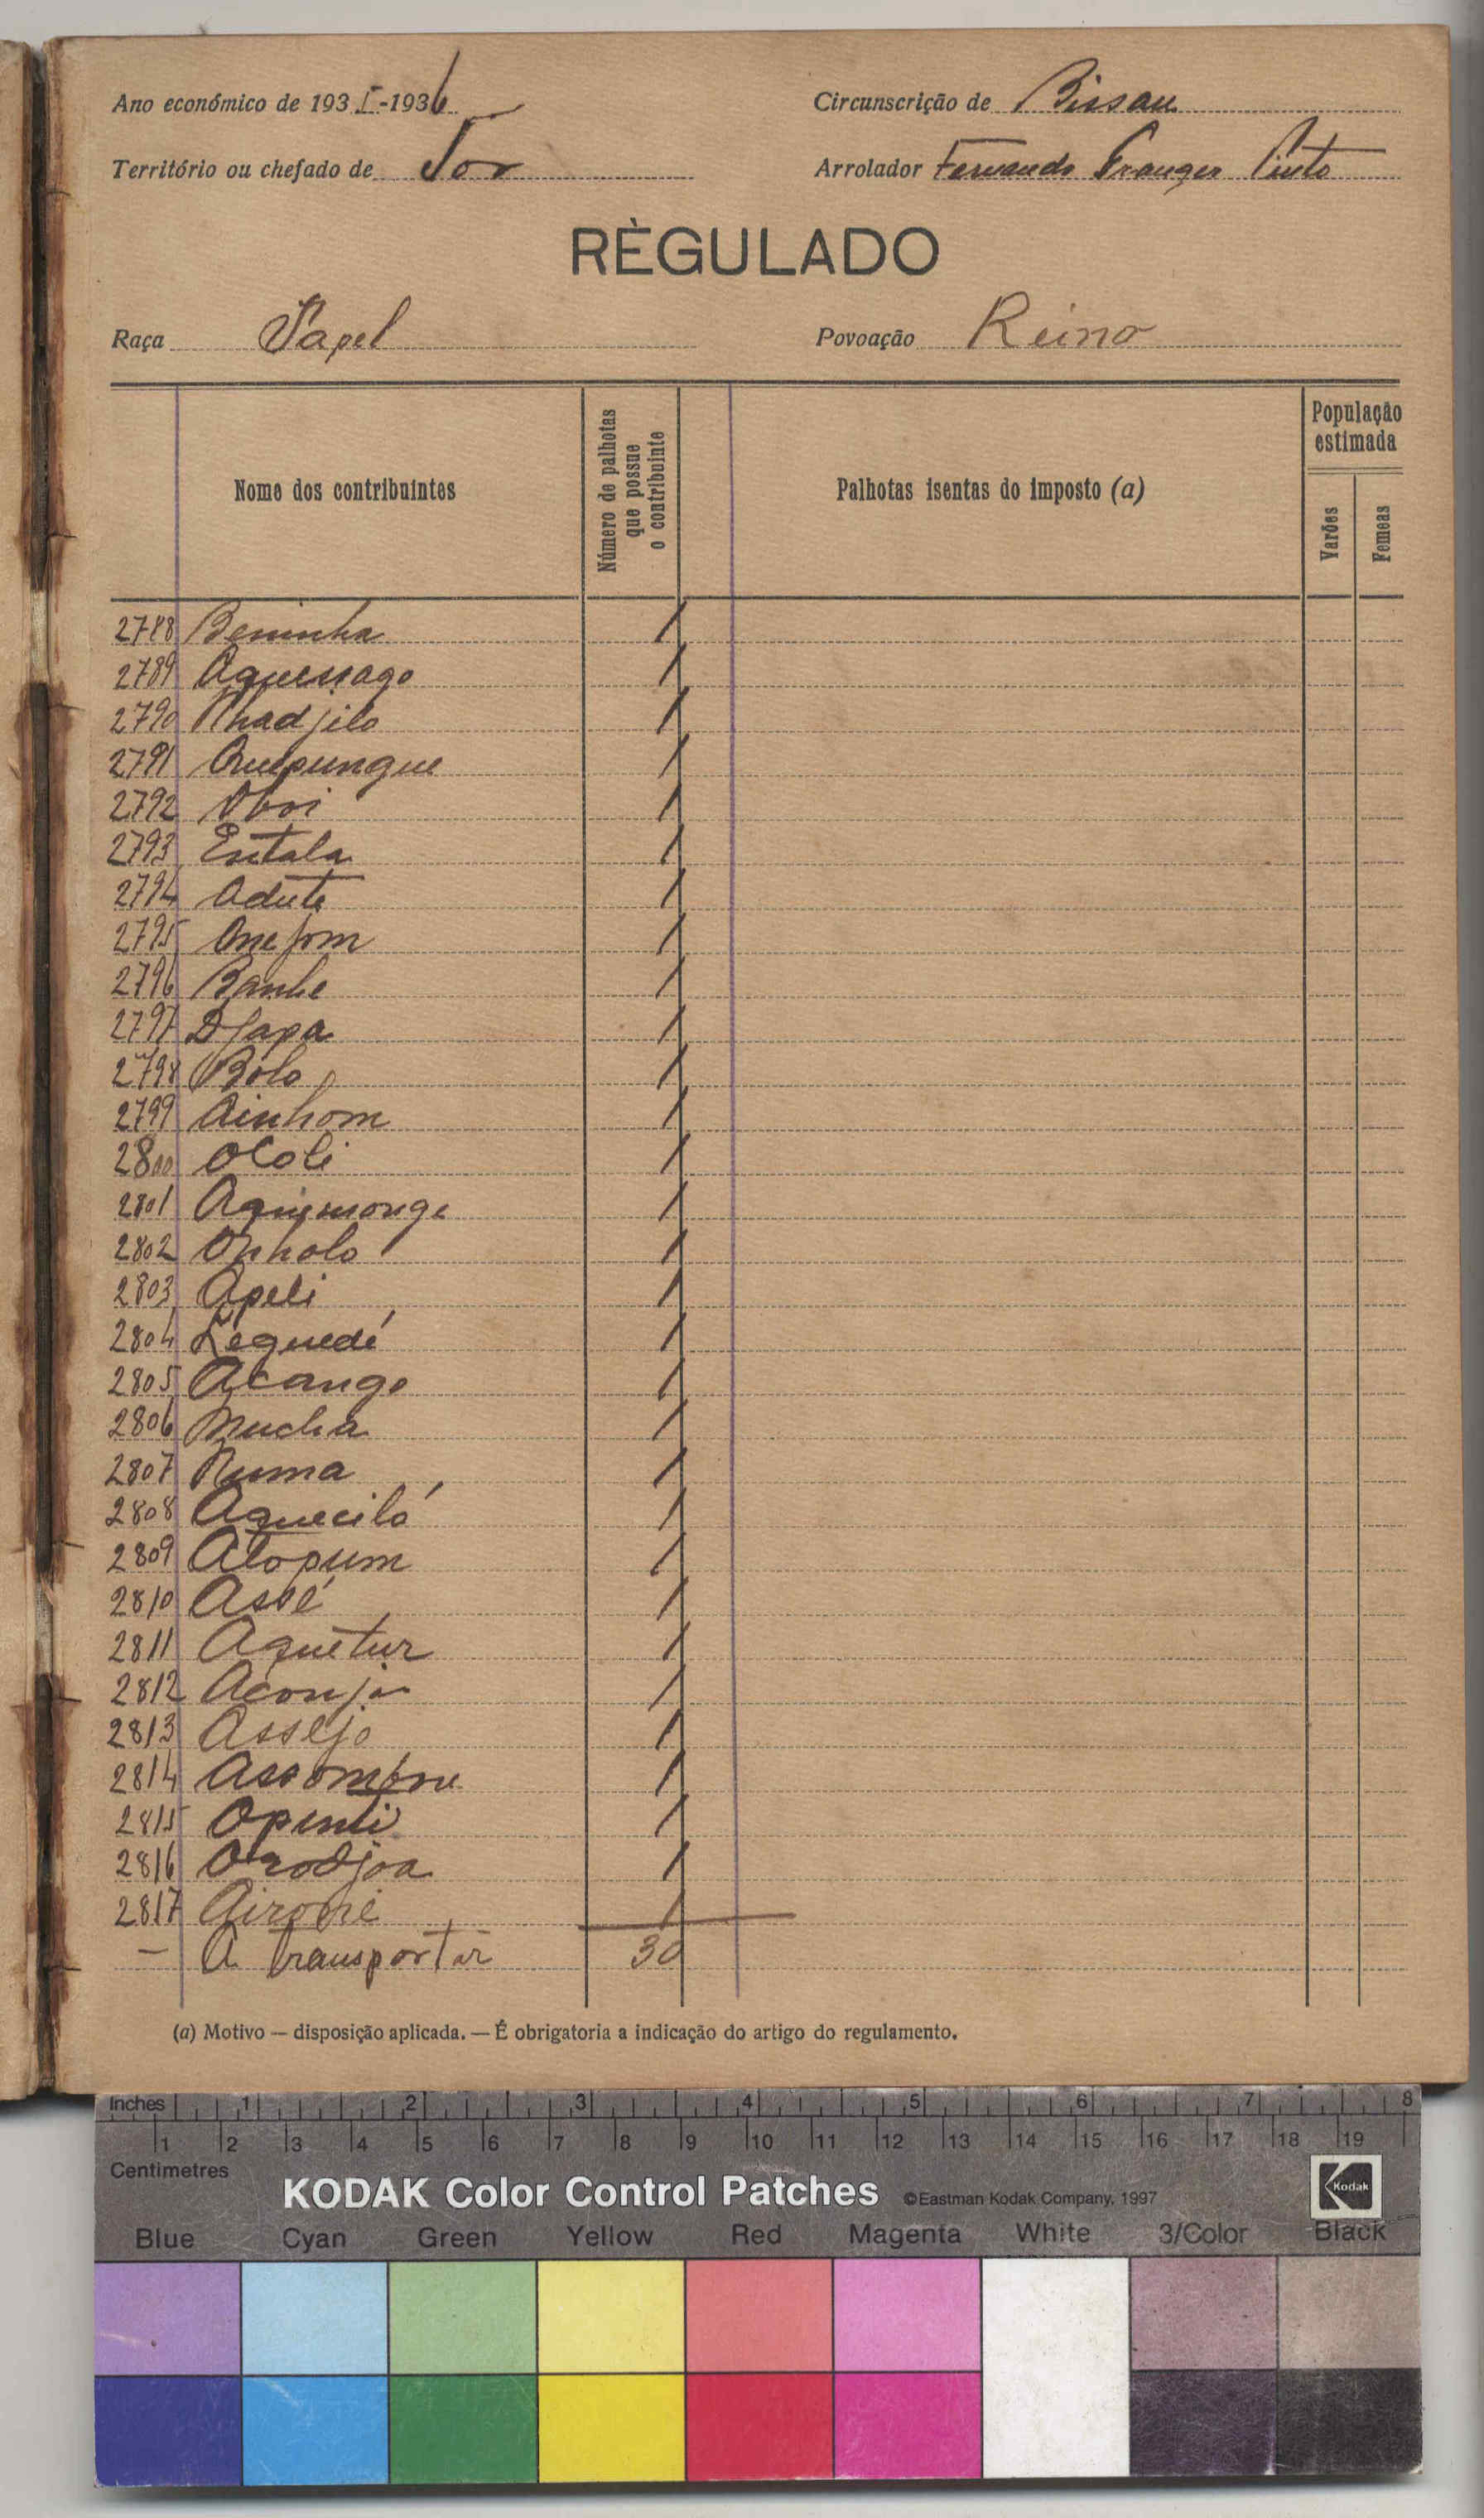 Ano económico de 1935-1936
Circunscrição de Bissau
Território ou chefado de Tor
Arrolador Fernando Granger Pinto
RÈGULADO
Raça Papel
Povoação Reino
Nome dos contribuintes
Número de palhotas que possue o contribuinte
Palhotas isentas do imposto (a)
População estimada
Varões
Femeas
2788 Beninha 1
2789 Aquessago 1
2790 Nhadjilo 1
2791 Quepungue 1
2792 Oboi 1
2793 Entala 1
2794 Adute 1
2795 Onefom 1
2796 Banhe 1
2797 Djapa 1
2798 Bólo 1
2799 Ainhom 1
2800 Ocoli 1
2801 Aquemonge 1
2802 Onholo 1
2803 Apeli 1
2804 Leguedé 1
2805 Acango 1
2806 Mucha 1
2807 Numa 1
2808 Aqueciló 1
2809 Atopum 1
2810 Assé 1
2811 Aquetur 1
2812 Aconja 1
2813 Assejo 1
2814 Assombre 1
2815 Openti 1
2816 Orodjoa 1
2817 1
— A transportar 30
(a) Motivo — disposição aplicada. — É obrigatoria a indicação do artigo do regulamento.
Inches 1 2 3 4 5 6 7 8
1 2 3 4 5 6 7 8 9 10 11 12 13 14 15 16 17 18 19
Centimetres
KODAK Color Control Patches ©Eastman Kodak Company, 1997 Kodak
Blue Cyan Green Yellow Red Magenta White 3/Color Black